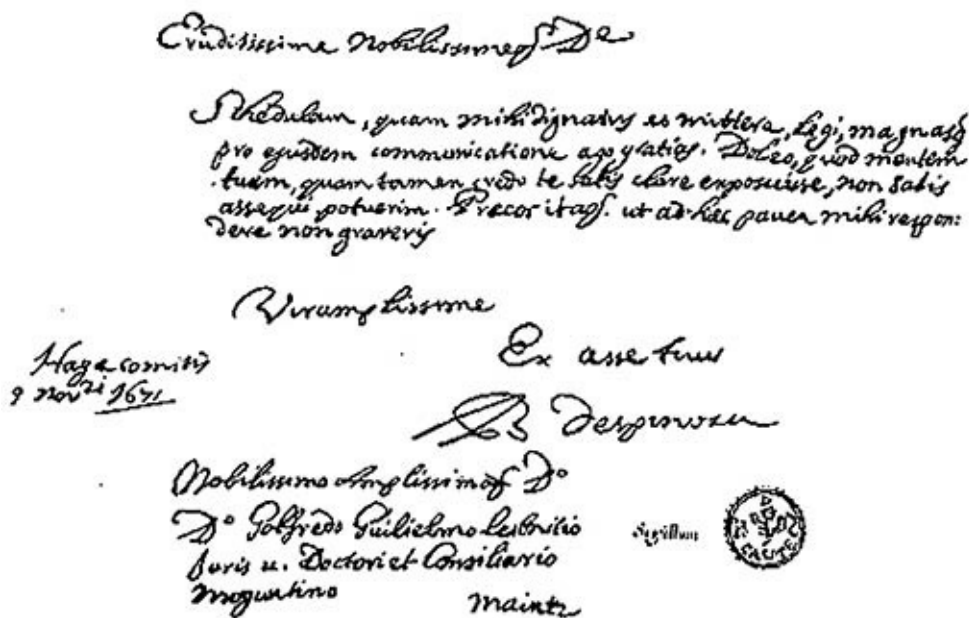 Eruditissime nobilissimeq. De
Schedulam, quam mihi dignatus es mittere, legi, magnasq.
pro ejusdem communicatione ago gratias. Doleo, quod mentem
tuam, quam tamen credo te satis clare exposuisse, non satis
assequi potuerim. Precor itaq. ut ad hæc pauca mihi respon:
dere non graveris
Vir amplissime
Ex asse tuus
Hagæ comitis
9 Novri 1671
B despinosa
Nobilissimo Amplissimoq. Do
Do Gotfredo Guilielmo Leibnitio
Juris u. Doctori et Consiliario
Moguntino Maintz
Sigillum
CAUTE